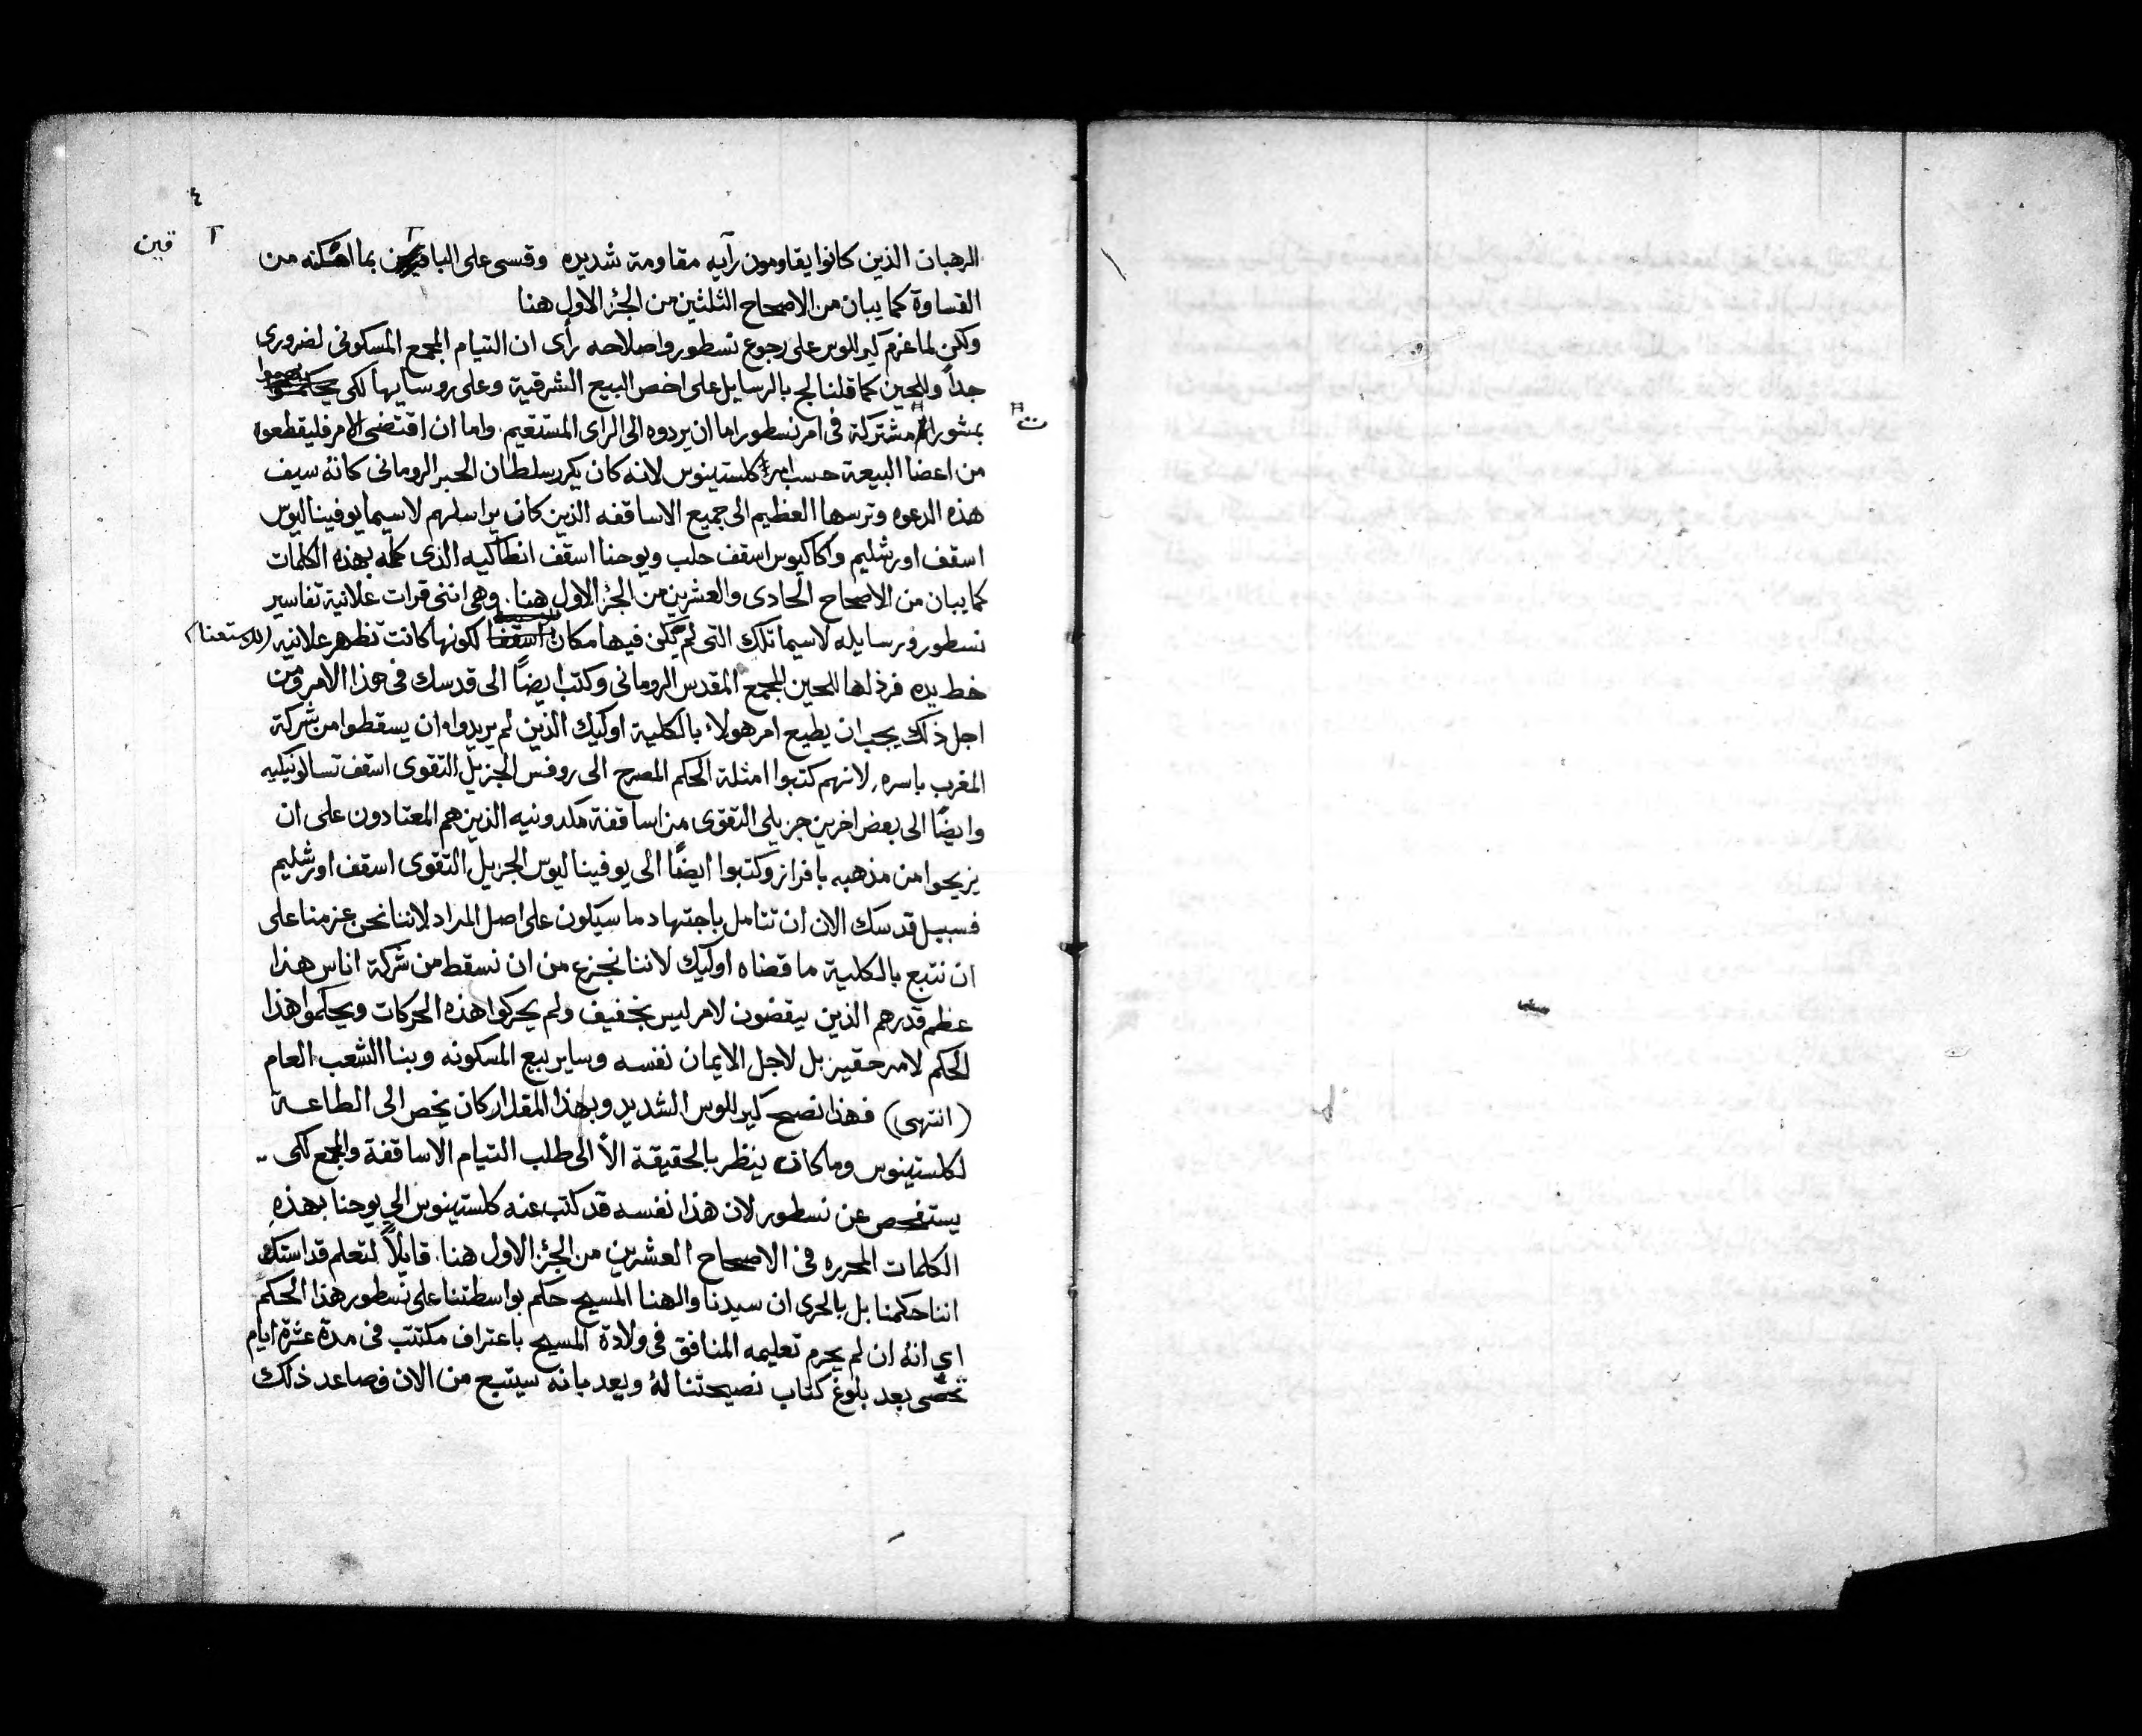 ٤
الرهبان الذين كانوا يقاومون رآيه مقاومة شديده وقسى على بما امكنه من
قين
القساوة كما يبان من الاصحاح الثلثين من الجزء الاول هنا
ولكن لما عزم كيرللوس على رجوع نسطور واصلاحه رأى ان التيام المجمع المسكونى لضرورى
جداً وللحين كما قلنا لج بالرسايل على اخص البيع الشرقية وعلى روسايها لكى
مشتركة فى امر نسطور اما ان يردوه الى الراى المستقيم. واما ان اقتضى الامر فليقطعوه
من اعضا البيعة حسب امر كلستينوس لانه كان يكرر سلطان الحبر الرومانى كانهٔ سيف
هذه الدعوه وترسها العظيم الى جميع الاساقفه الذين كان يراسلهم لاسيما يوفيناليوس
اسقف اورشليم واكاكيوس اسقف حلب ويوحنا اسقف انطاكيه الذى كلمه بهذه الكلمات
كما يبان من الاصحاح الحادى والعشرين من الجزء الاول هنا. وهى اننى قرات علانية تفاسير
نسطور ورسايله لاسيما تلك التى لم يكن فيها مكان لكونها كانت تظهر علانيه
خط يده فرذلها للحين المجمع المقدس الرومانى وكتب ايضًا الى قدسك فى هذا الامر ومن
اجل ذلك يجب ان يطيع امر هولاء بالكلية اوليك الذين لم يريدوا ان يسقطوا من شركة
المغرب باسره. لانهم كتبوا امثلة الحكم المصرح الى روفس الجزيل التقوى اسقف تسالونيكيه
وايضًا الى بعض اخرين جزيلى التقوى من اساقفة مكدونيه الذين هم المعتادون على ان
يزيحوا من مذهبه بافراز وكتبوا ايضًا الى يوفيناليوس الجزيل التقوى اسقف اورشليم
فسبيل قدسك الان ان تتامل باجتهاد ما سيكون على اصل المراد لاننا نحن عزمنا على
ان نتبع بالكلية ما قضاه اوليك لاننا نجزع من ان نسقط من شركة اناس هذا
عظم قدرهم الذين يقضون لامر ليس بخفيف ولم يحركوا هذه الحركات ويحكموا هذا
الحكم لامر حقير بل لاجل الايمان نفسه وساير بيع المسكونه وبنا الشعب العام
(انتهى) فهذا نصح كيرللوس الشديد وبهذا المقدار كان يخص الى الطاعة
لكلستينوس وما كان ينظر بالحقيقة الا الى طلب التيام الاساقفة والمجمع لكى
يستفحص عن نسطور لان هذا نفسه قد كتب عنه كلستينوس الى يوحنا بهذه
الكلمات المحرره فى الاصحاح العشرين من الجزء الاول هنا. قايلاً لتعلم قداستك
اننا حكمنا بل بالحرى ان سيدنا والهنا المسيح حكم بواسطتنا على نسطور هذا الحكم
اى انهٔ ان لم يحرم تعليمه المنافق فى ولادة المسيح باعتراف مكتتب فى مدة عشرة ايام
تحصى بعد بلوغ كتاب نصيحتنا لهٔ ويعد بانه سيتبع من الان فصاعد ذلك